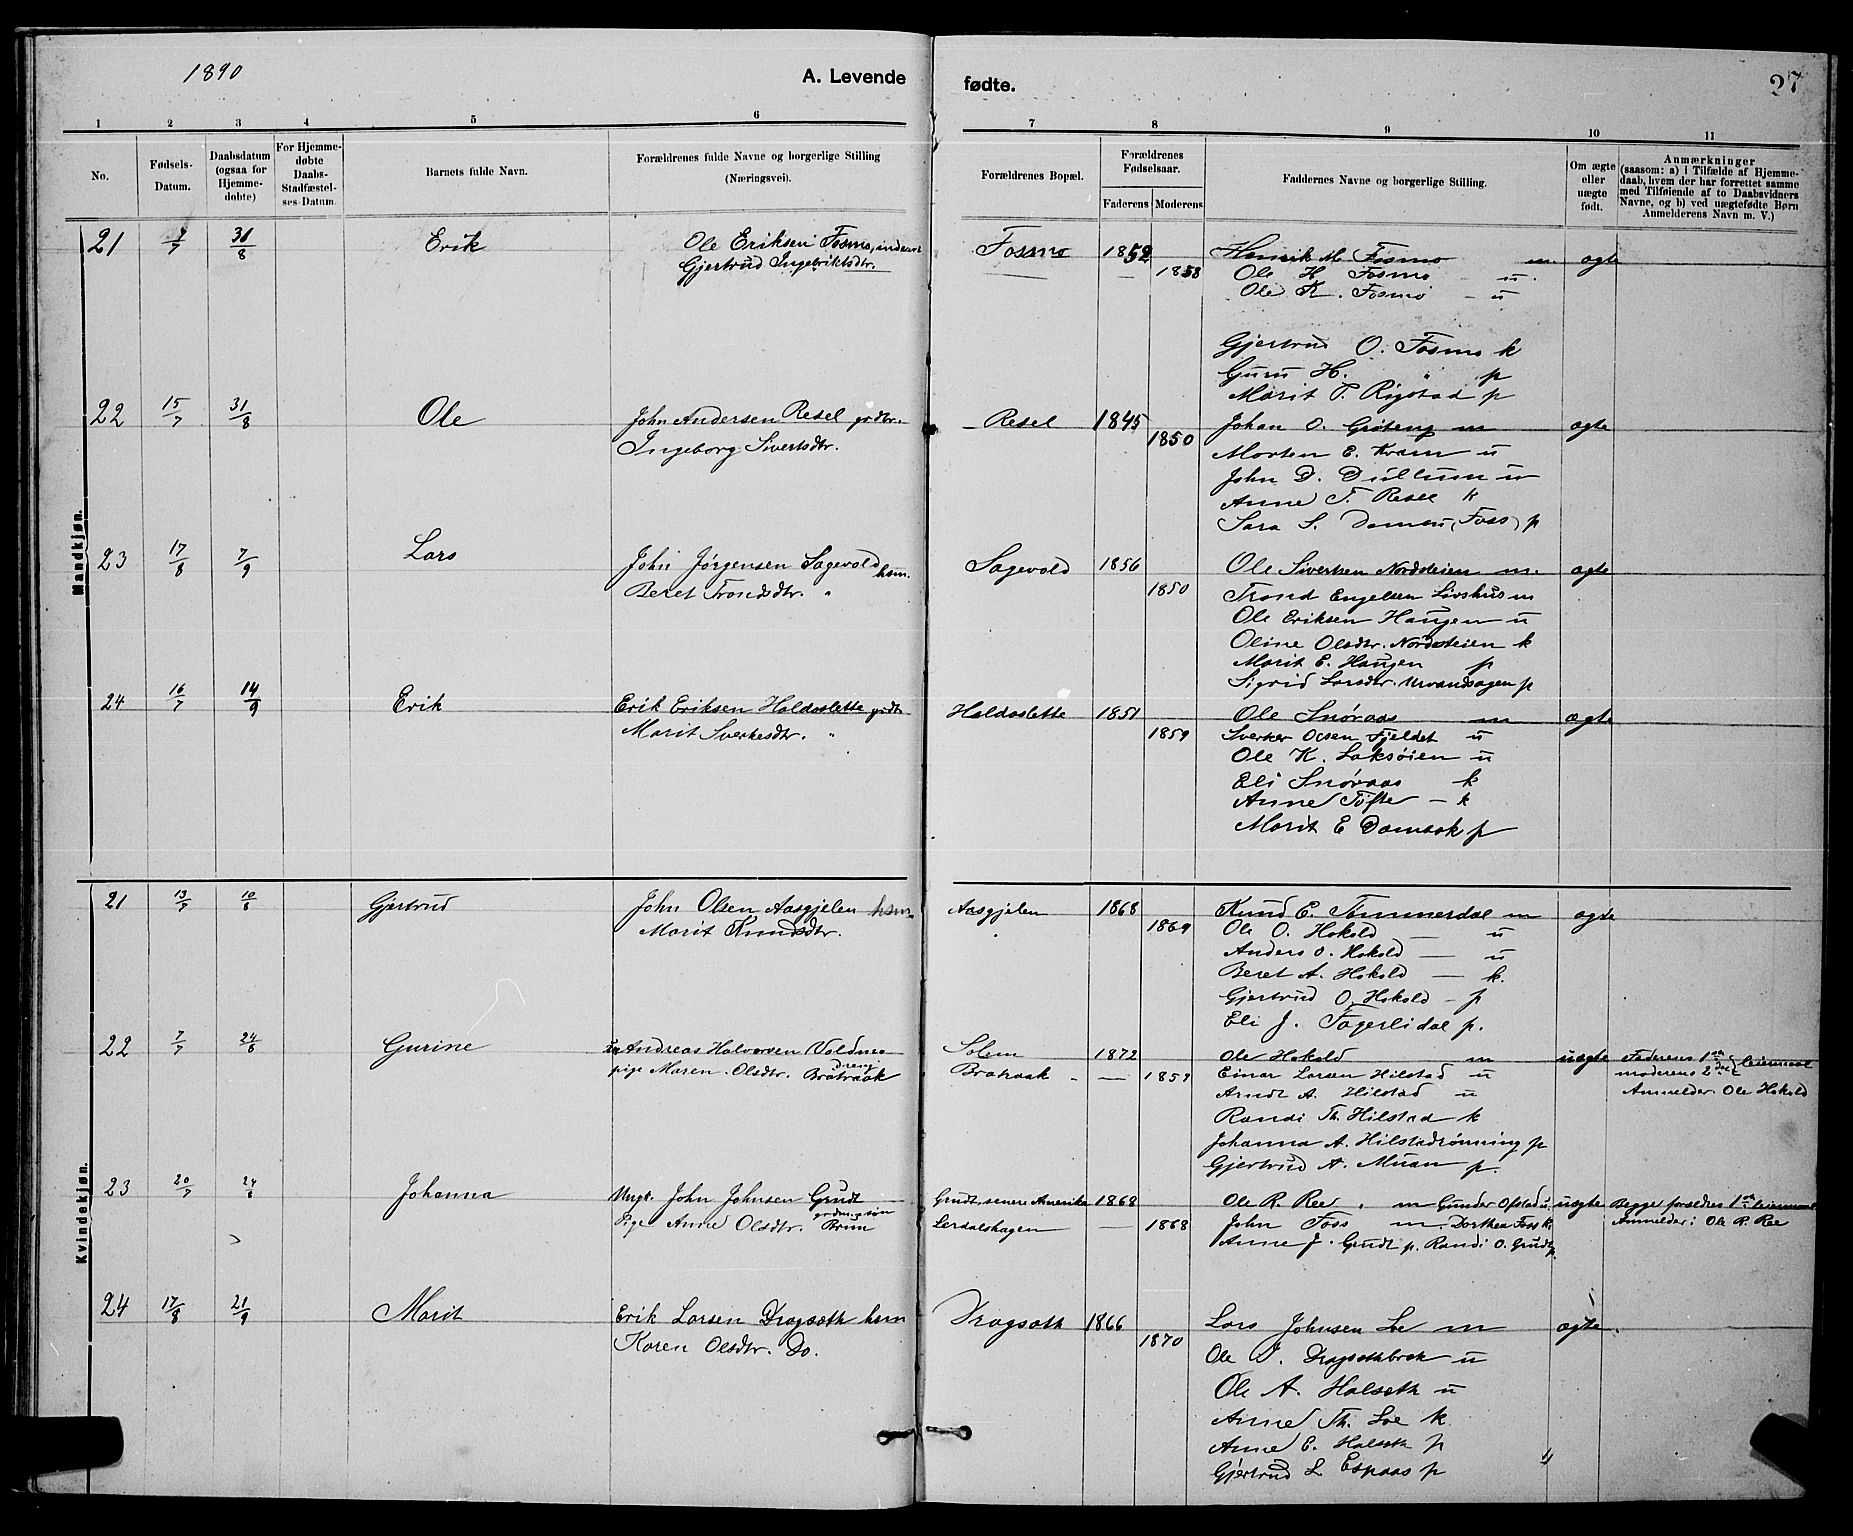 1890
A. Levende fødte.
27
1 2 3 4 5 6 7 8 9 10 11
No.
Fødsels-Datum.
Daabsdatum (ogsaa for Hjemme-døbte)
For Hjemme-døbte Daabs-Stadfæstel-ses-Datum.
Barnets fulde Navn.
Forældrenes fulde Navne og borgerlige Stilling (Næringsvei).
Forældrenes Bopæl.
Forældrenes Fødselsaar.
Faderens Moderens
Faddernes Navne og borgerlige Stilling.
Om ægte eller uægte født.
Anmærkninger (saasom: a) i Tilfælde af Hjemme-daab, hvem der har forrettet samme med Tilføiende af to Daabsvidners Navne, og b) ved uægtefødte Børn Anmelderens Navn m. V.)
Mandkjøn.
21 31/8 Erik Ole Eriksen Fosmo Fosmo 1852 Henrik M. Fosmo m. ægte
Gjertrud Ingebriktsdtr. 1858 Ole H Fosmo u.
Ole K. Fosmo - u
Gjertrud O. Fosmo k
Guru H. " p
Marit T. Rigstad p
22 15/7 31/8 Ole John Andersen Resel grdbr. Resel 1845 Johan O. Grøteng m ægte
Ingeborg Sivertsdtr. 1850 Morten E. Kvam u
John D. Dullum u
Anne T. Resel k
Sara S. (Foss) p
23 17/8 7/9 Lars John Jørgensen Sagevold hsm. Sagevold 1856 Ole Sivertsen Nordsteien m. ægte
Beret Trondsdtr. " 1850 Trond Engelsen m
Ole Eriksen Haugen u
Oline Olsdtr. Nordsteien k
Marit E. Haugen p
Sigrid Larsdtr. p
24 16/7 14/9 Erik Erik Eriksen Haldoslette grdbr Haldoslette 1851 Ole Snøraas m ægte
Marit Sverkesdtr. " 1859 Sverker Olsen Fjeldet u
Ole K. Laksøien u
Eli Snøraas k
Anne Tøfte - k
Marit E p
Kvindekjøn.
21 13/7 10/8 Gjertrud John Olsen Aasgjelen hsm. Aasgjelen 1868 Knud E. Tømmerdal m ægte
Marit Knudsdtr. " 1869 Ole O. Hokold — u
Anders O. Hokold — u
Beret A. Hokold — k.
Gjertrud O. Hokold - p
Eli J. Fagerlidal p.
22 7/7 24/8 Gurine Andreas Halvorsen Voldmo Solem 1872 Ole Hokold m uægte Faderens 1ste
dreng
pige Maren Olsdtr. Bratraak Bratraak - — 1859 Einar Larsen Hilstad u moderens 2det leiermaal
Arndt A. Hilstad u Anmelder. Ole Hokold
Randi Th. Hilstad k
Johanna A. Hilstadrønning p
Gjertrud A. Muan p.
23 20/7 24/8 Johanna Ungk. John Johnsen Grudt Grudt, senere Amerika 1868 Ole R. Ree. m Gunder Opstad u. uægte Begge forældres 1ste leiermaal
Pige Anne Olsdtr. Brun Lerdalshagen — 1868 John Foss m. Dorthea Foss k. Anmelder: Ole R. Ree
Anne J. Grudt p. Randi O. Grudt p.
24 17/8 21/9 Marit Erik Larsen Dragseth hsm Dragseth 1866 Lars Johnsen Loe m ægte.
Karen Olsdtr. Do. 1870 Ole J. u
Ole A. Halseth u
Anne Th. Loe k
Anne E. Halseth p
Gjertrud L Espaas p